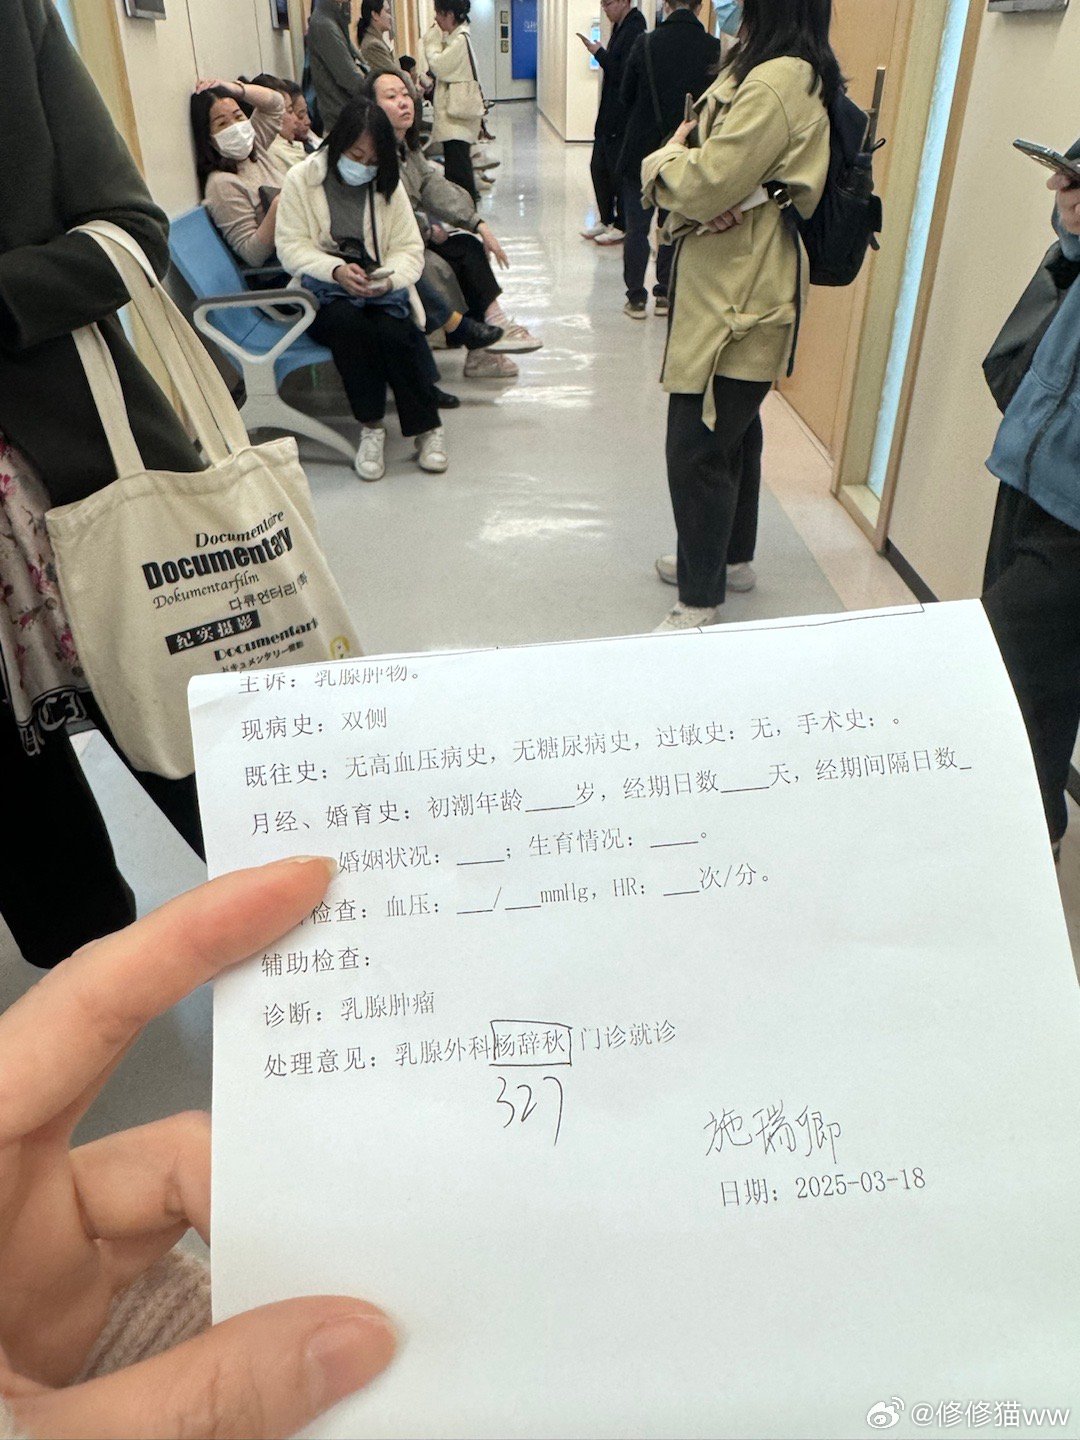 Documentaire
Documentary
Dokumentarfilm
다큐멘터리
纪实摄影
Documentari
ドキュメンタリー
主诉：乳腺肿物。
现病史：双侧
既往史：无高血压病史，无糖尿病史，过敏史：无，手术史：。
月经、婚育史：初潮年龄____岁，经期日数____天，经期间隔日数_
婚姻状况：____；生育情况：____。
检查：血压：___/___mmHg，HR：___次/分。
辅助检查：
诊断：乳腺肿瘤
处理意见：乳腺外科杨辞秋 门诊就诊
327
施瑞卿
日期：2025-03-18
@修修猫ww